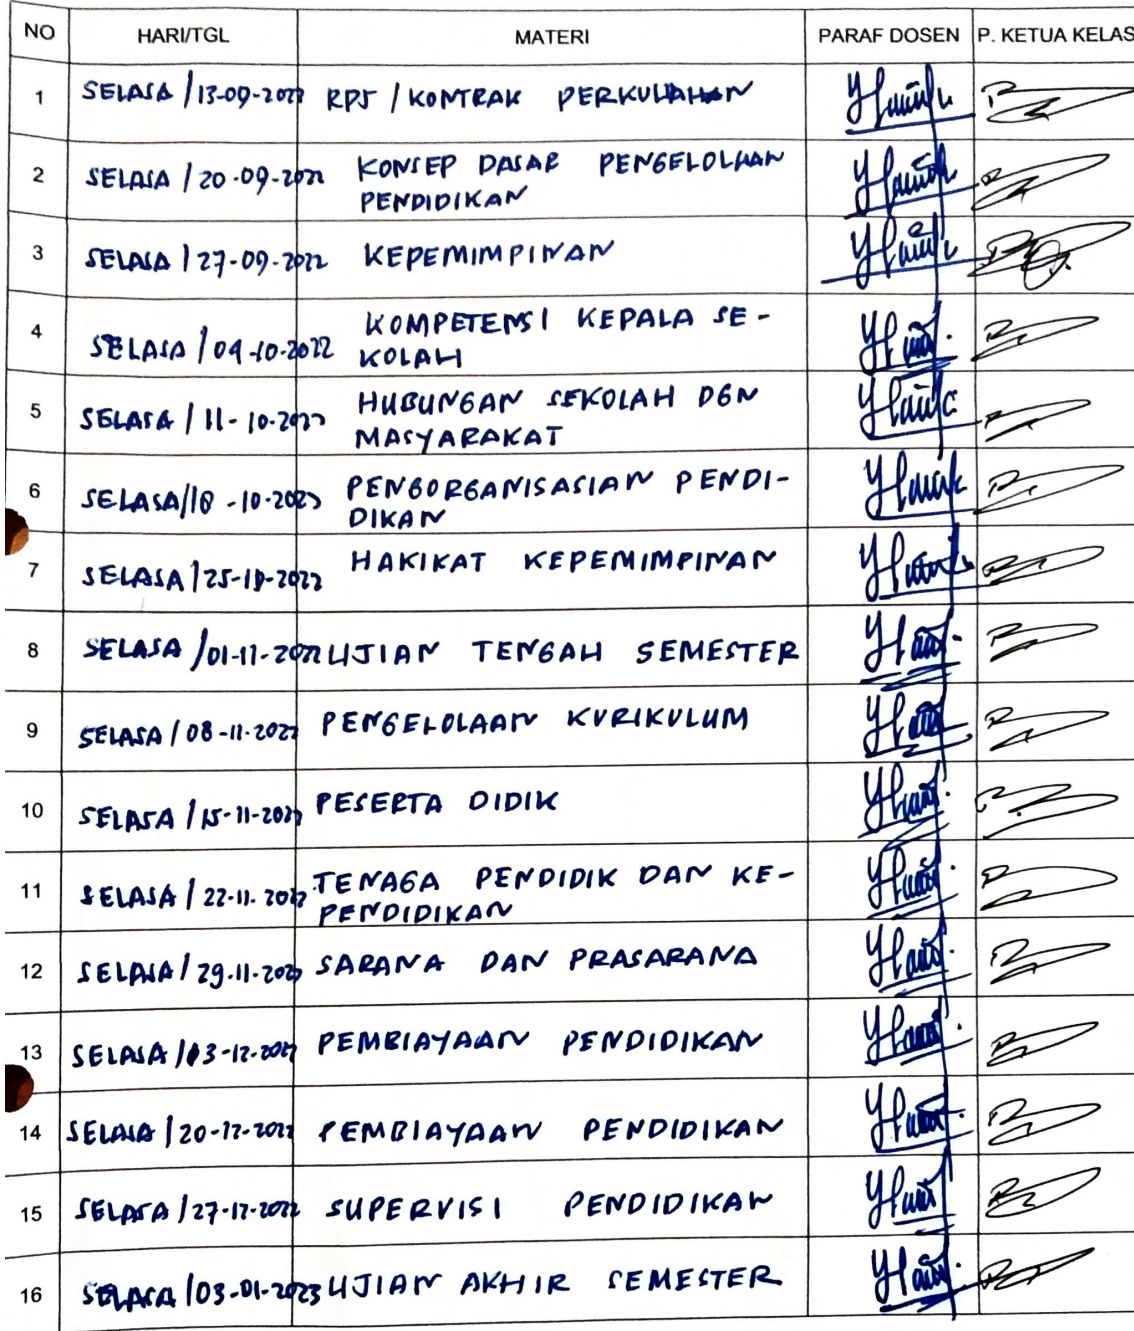 NO HARI/TGL MATERI PARAF DOSEN P. KETUA KELAS
1 SELASA / 13-09-2022 RPS / KONTRAK PERKULIAHAN
2 SELASA / 20-09-2022 KONSEP DASAR PENGELOLAAN
PENDIDIKAN
3 SELASA / 27-09-2022 KEPEMIMPINAN
4 SELASA / 04-10-2022 KOMPETENSI KEPALA SE-
KOLAH
5 SELASA / 11-10-2022 HUBUNGAN SEKOLAH DGN
MASYARAKAT
6 SELASA/18-10-2022 PENGORGANISASIAN PENDI-
DIKAN
7 SELASA / 25-10-2022 HAKIKAT KEPEMIMPINAN
8 SELASA / 01-11-2022 UJIAN TENGAH SEMESTER
9 SELASA / 08-11-2022 PENGELOLAAN KURIKULUM
10 SELASA / 15-11-2022 PESERTA DIDIK
11 SELASA / 22-11-2022 TENAGA PENDIDIK DAN KE-
PENDIDIKAN
12 SELASA / 29-11-2022 SARANA DAN PRASARANA
13 SELASA / 13-12-2022 PEMBIAYAAN PENDIDIKAN
14 SELASA / 20-12-2022 PEMBIAYAAN PENDIDIKAN
15 SELASA / 27-12-2022 SUPERVISI PENDIDIKAN
16 SELASA / 03-01-2023 UJIAN AKHIR SEMESTER